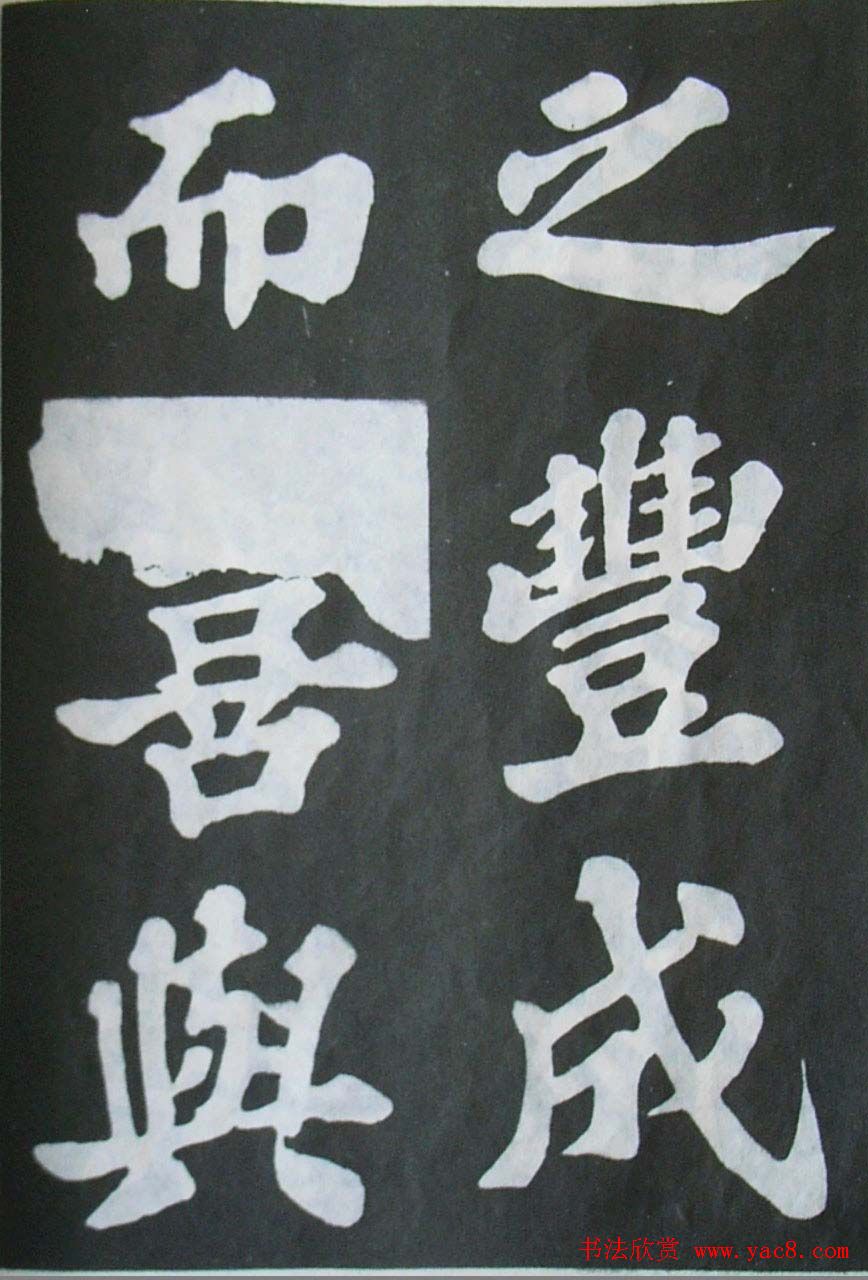 之豐成
而喜與
书法欣赏 www.yac8.com